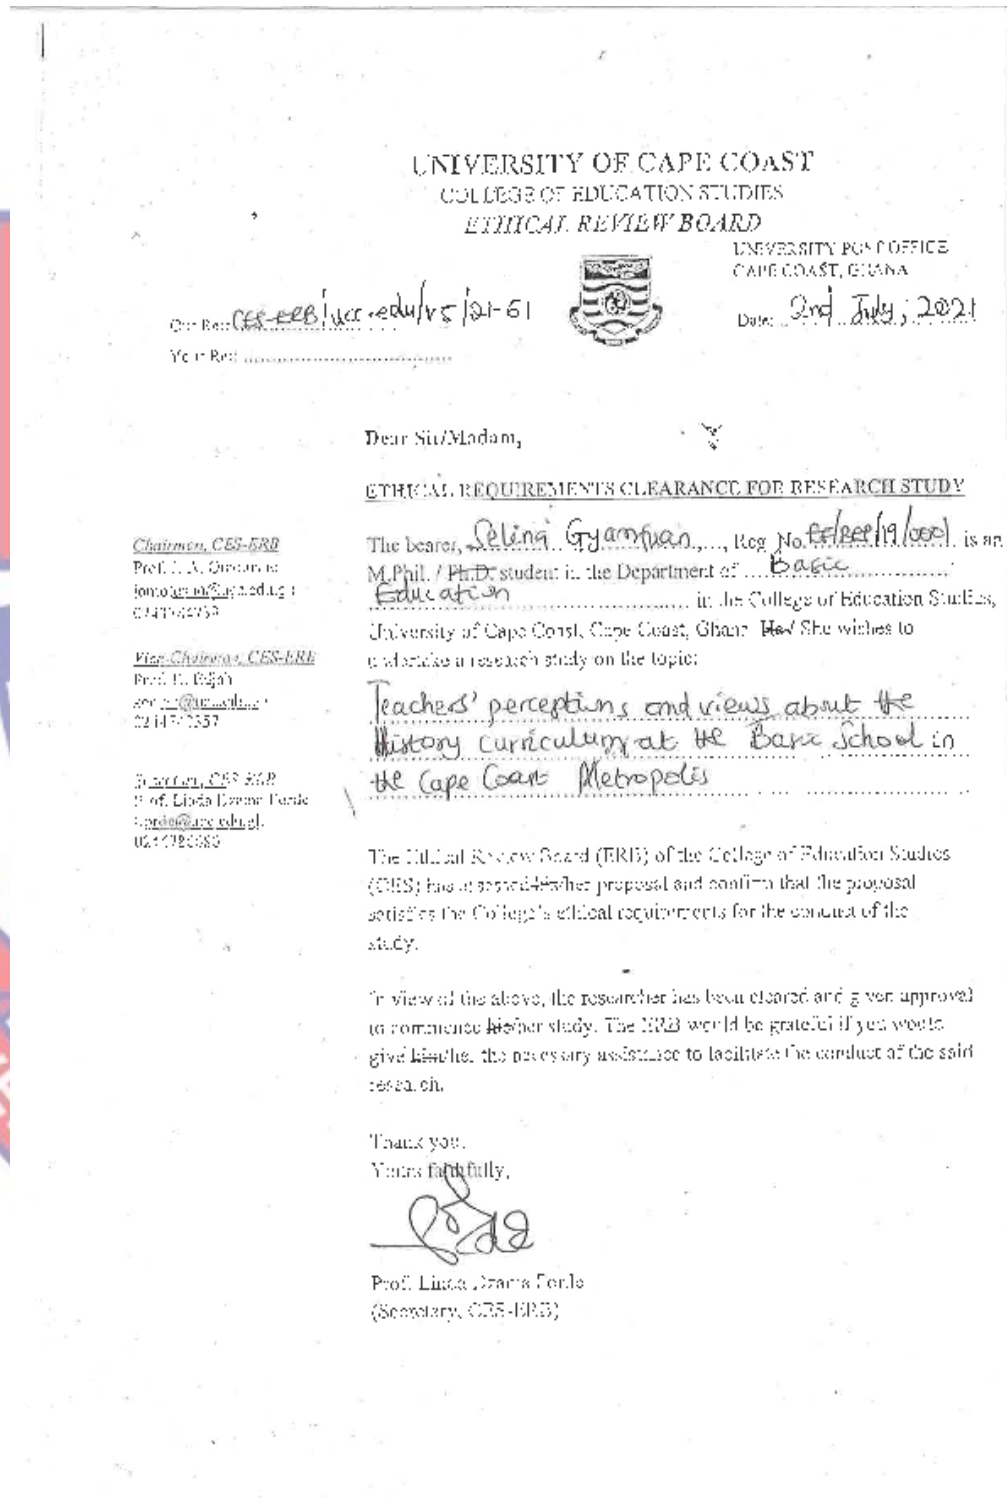 UNIVERSITY OF CAPE COAST
COLLEGE OF EDUCATION STUDIES
ETHICAL REVIEW BOARD
UNIVERSITY POST OFFICE
CAPE COAST, GHANA
Our Ref: CES-ERB/ucc.edu/v5/21-61
Date: 2nd July, 2021
Your Ref:
Dear Sir/Madam,
ETHICAL REQUIREMENTS CLEARANCE FOR RESEARCH STUDY
Chairman, CES-ERB
Prof. J. A.
Vice-Chairman, CES-ERB
Prof. K. Edjah
0244742357
Secretary, CES-ERB
Prof. Linda Dzama Forde
The bearer, Selina Gyamfuan, Reg. No. is an
M.Phil. / Ph.D. student in the Department of Basic
Education in the College of Education Studies,
University of Cape Coast, Cape Coast, Ghana. He / She wishes to
undertake a research study on the topic:
Teachers' perceptions and views about the
History curriculum at the Basic School in
the Cape Coast Metropolis
The Ethical Review Board (ERB) of the College of Education Studies
(CES) has assessed his/her proposal and confirm that the proposal
satisfies the College's ethical requirements for the conduct of the
study.
In view of the above, the researcher has been cleared and given approval
to commence his/her study. The ERB would be grateful if you would
give him/her the necessary assistance to facilitate the conduct of the said
research.
Thank you.
Yours faithfully,
Prof. Linda Dzama Forde
(Secretary, CES-ERB)